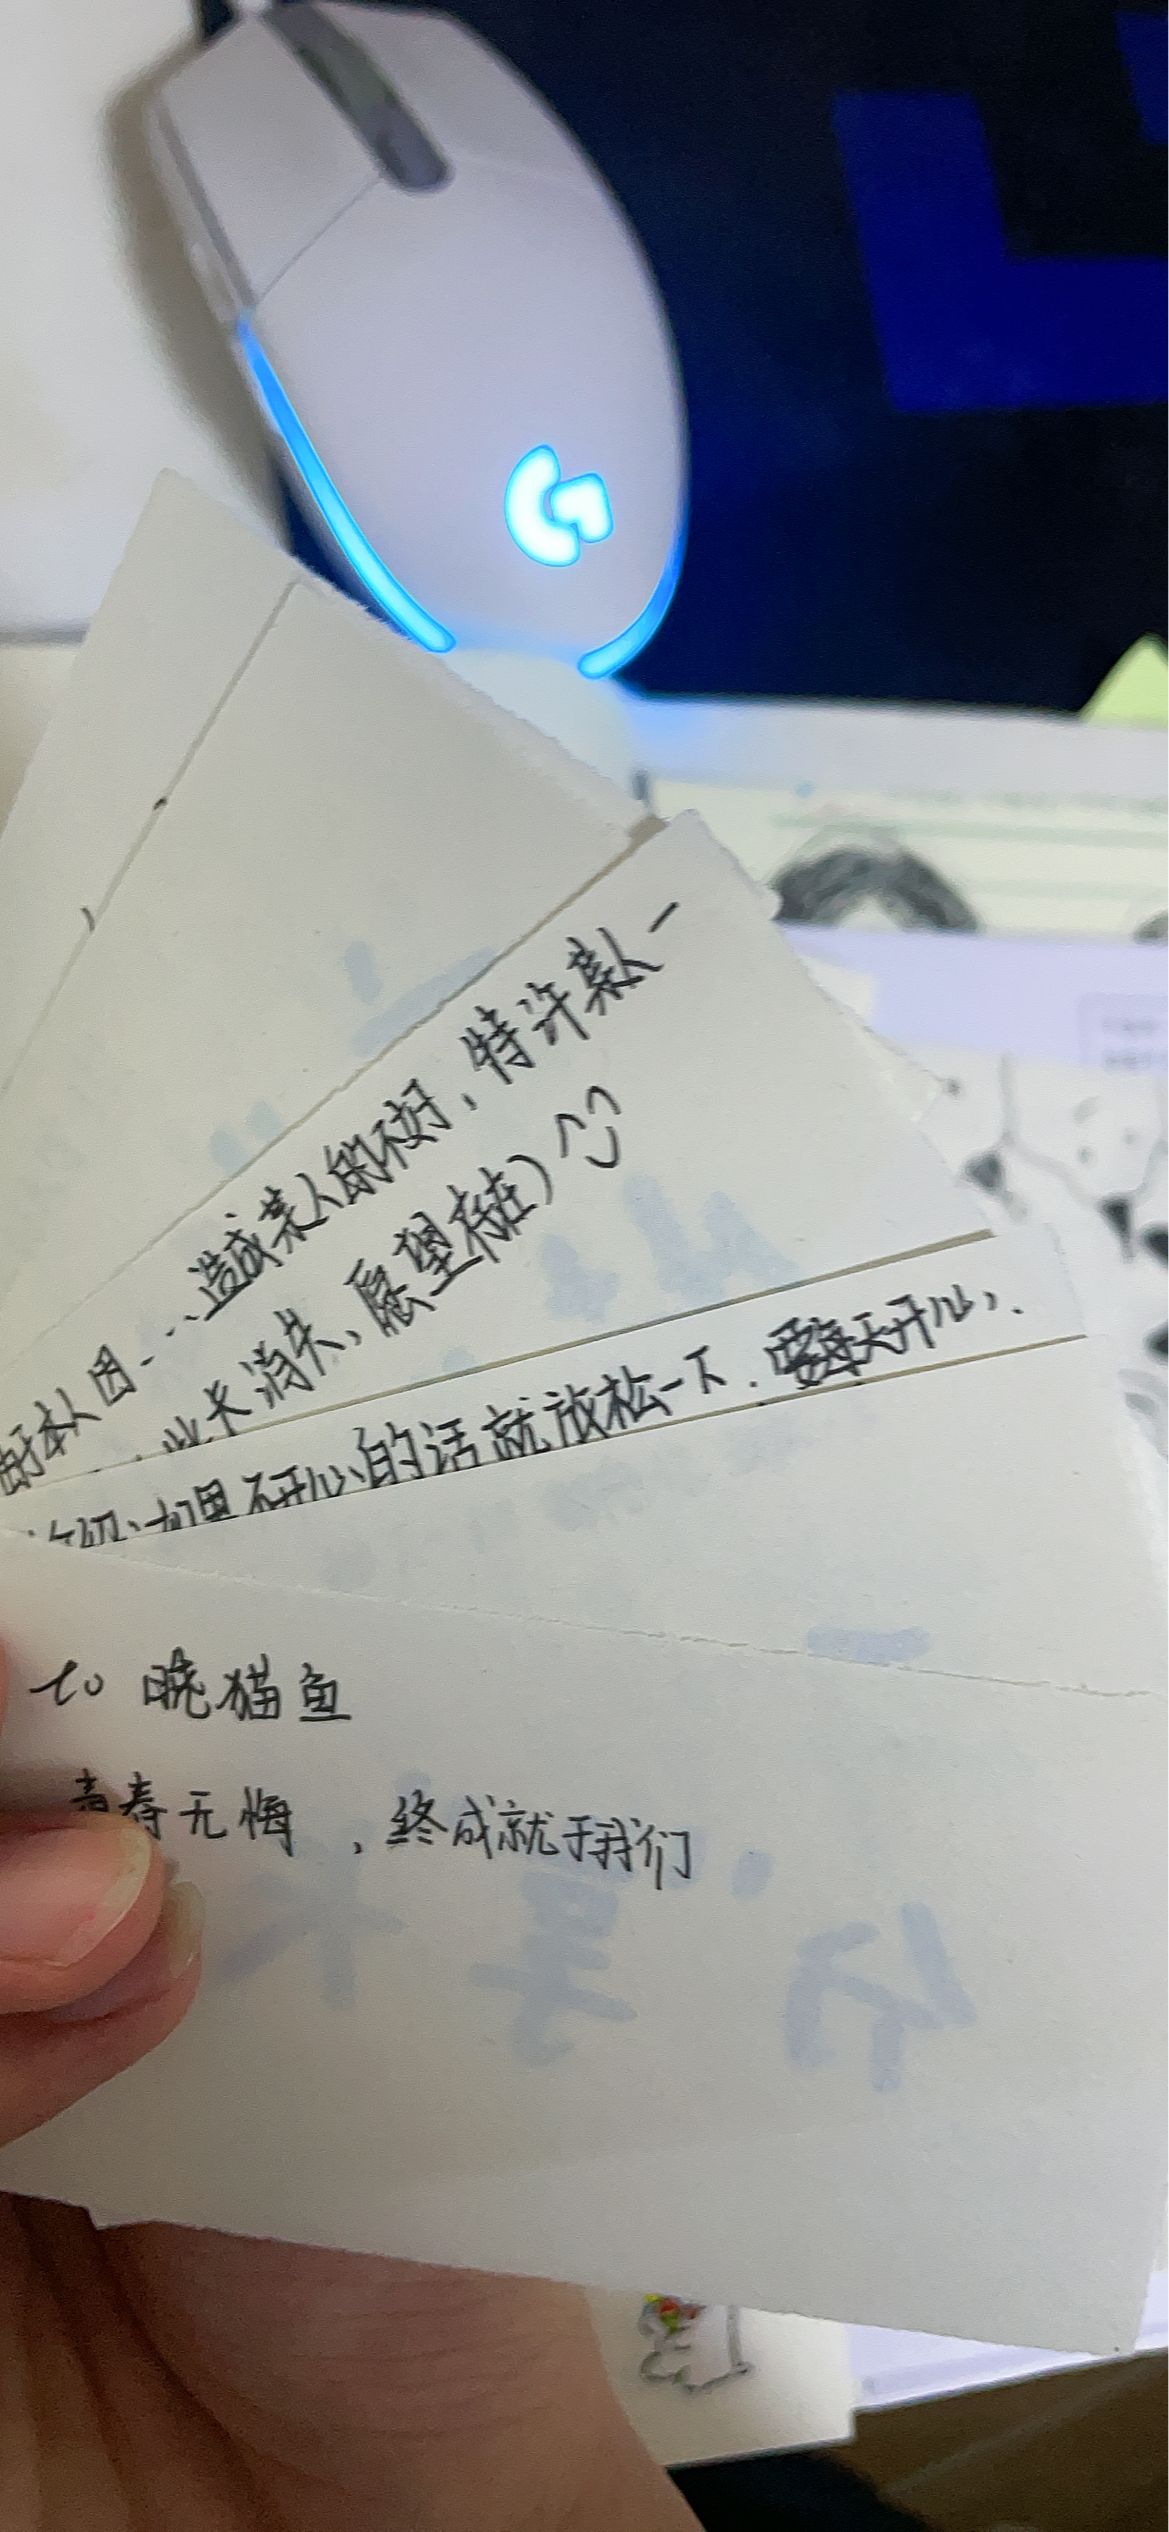 由于本人因...造成某人的不好，特许某人一
此卡消失，愿望存在）
如果不开心的话就放松一下.要每天开心.
to 晓猫鱼
青春无悔，终成就于我们